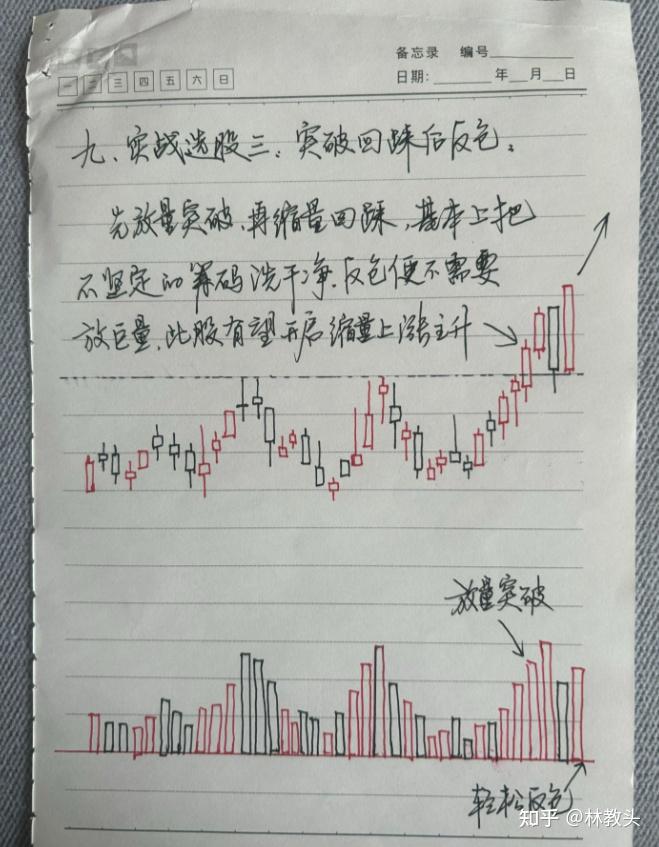 备忘录 编号
一 二 三 四 五 六 日
日期: 年 月 日
九、实战选股三:突破回踩后反包。
先放量突破,再缩量回踩,基本上把
不坚定的筹码洗干净,反包便不需要
放巨量,此股有望开启缩量上涨主升
放量突破
轻松反包
知乎 @林教头